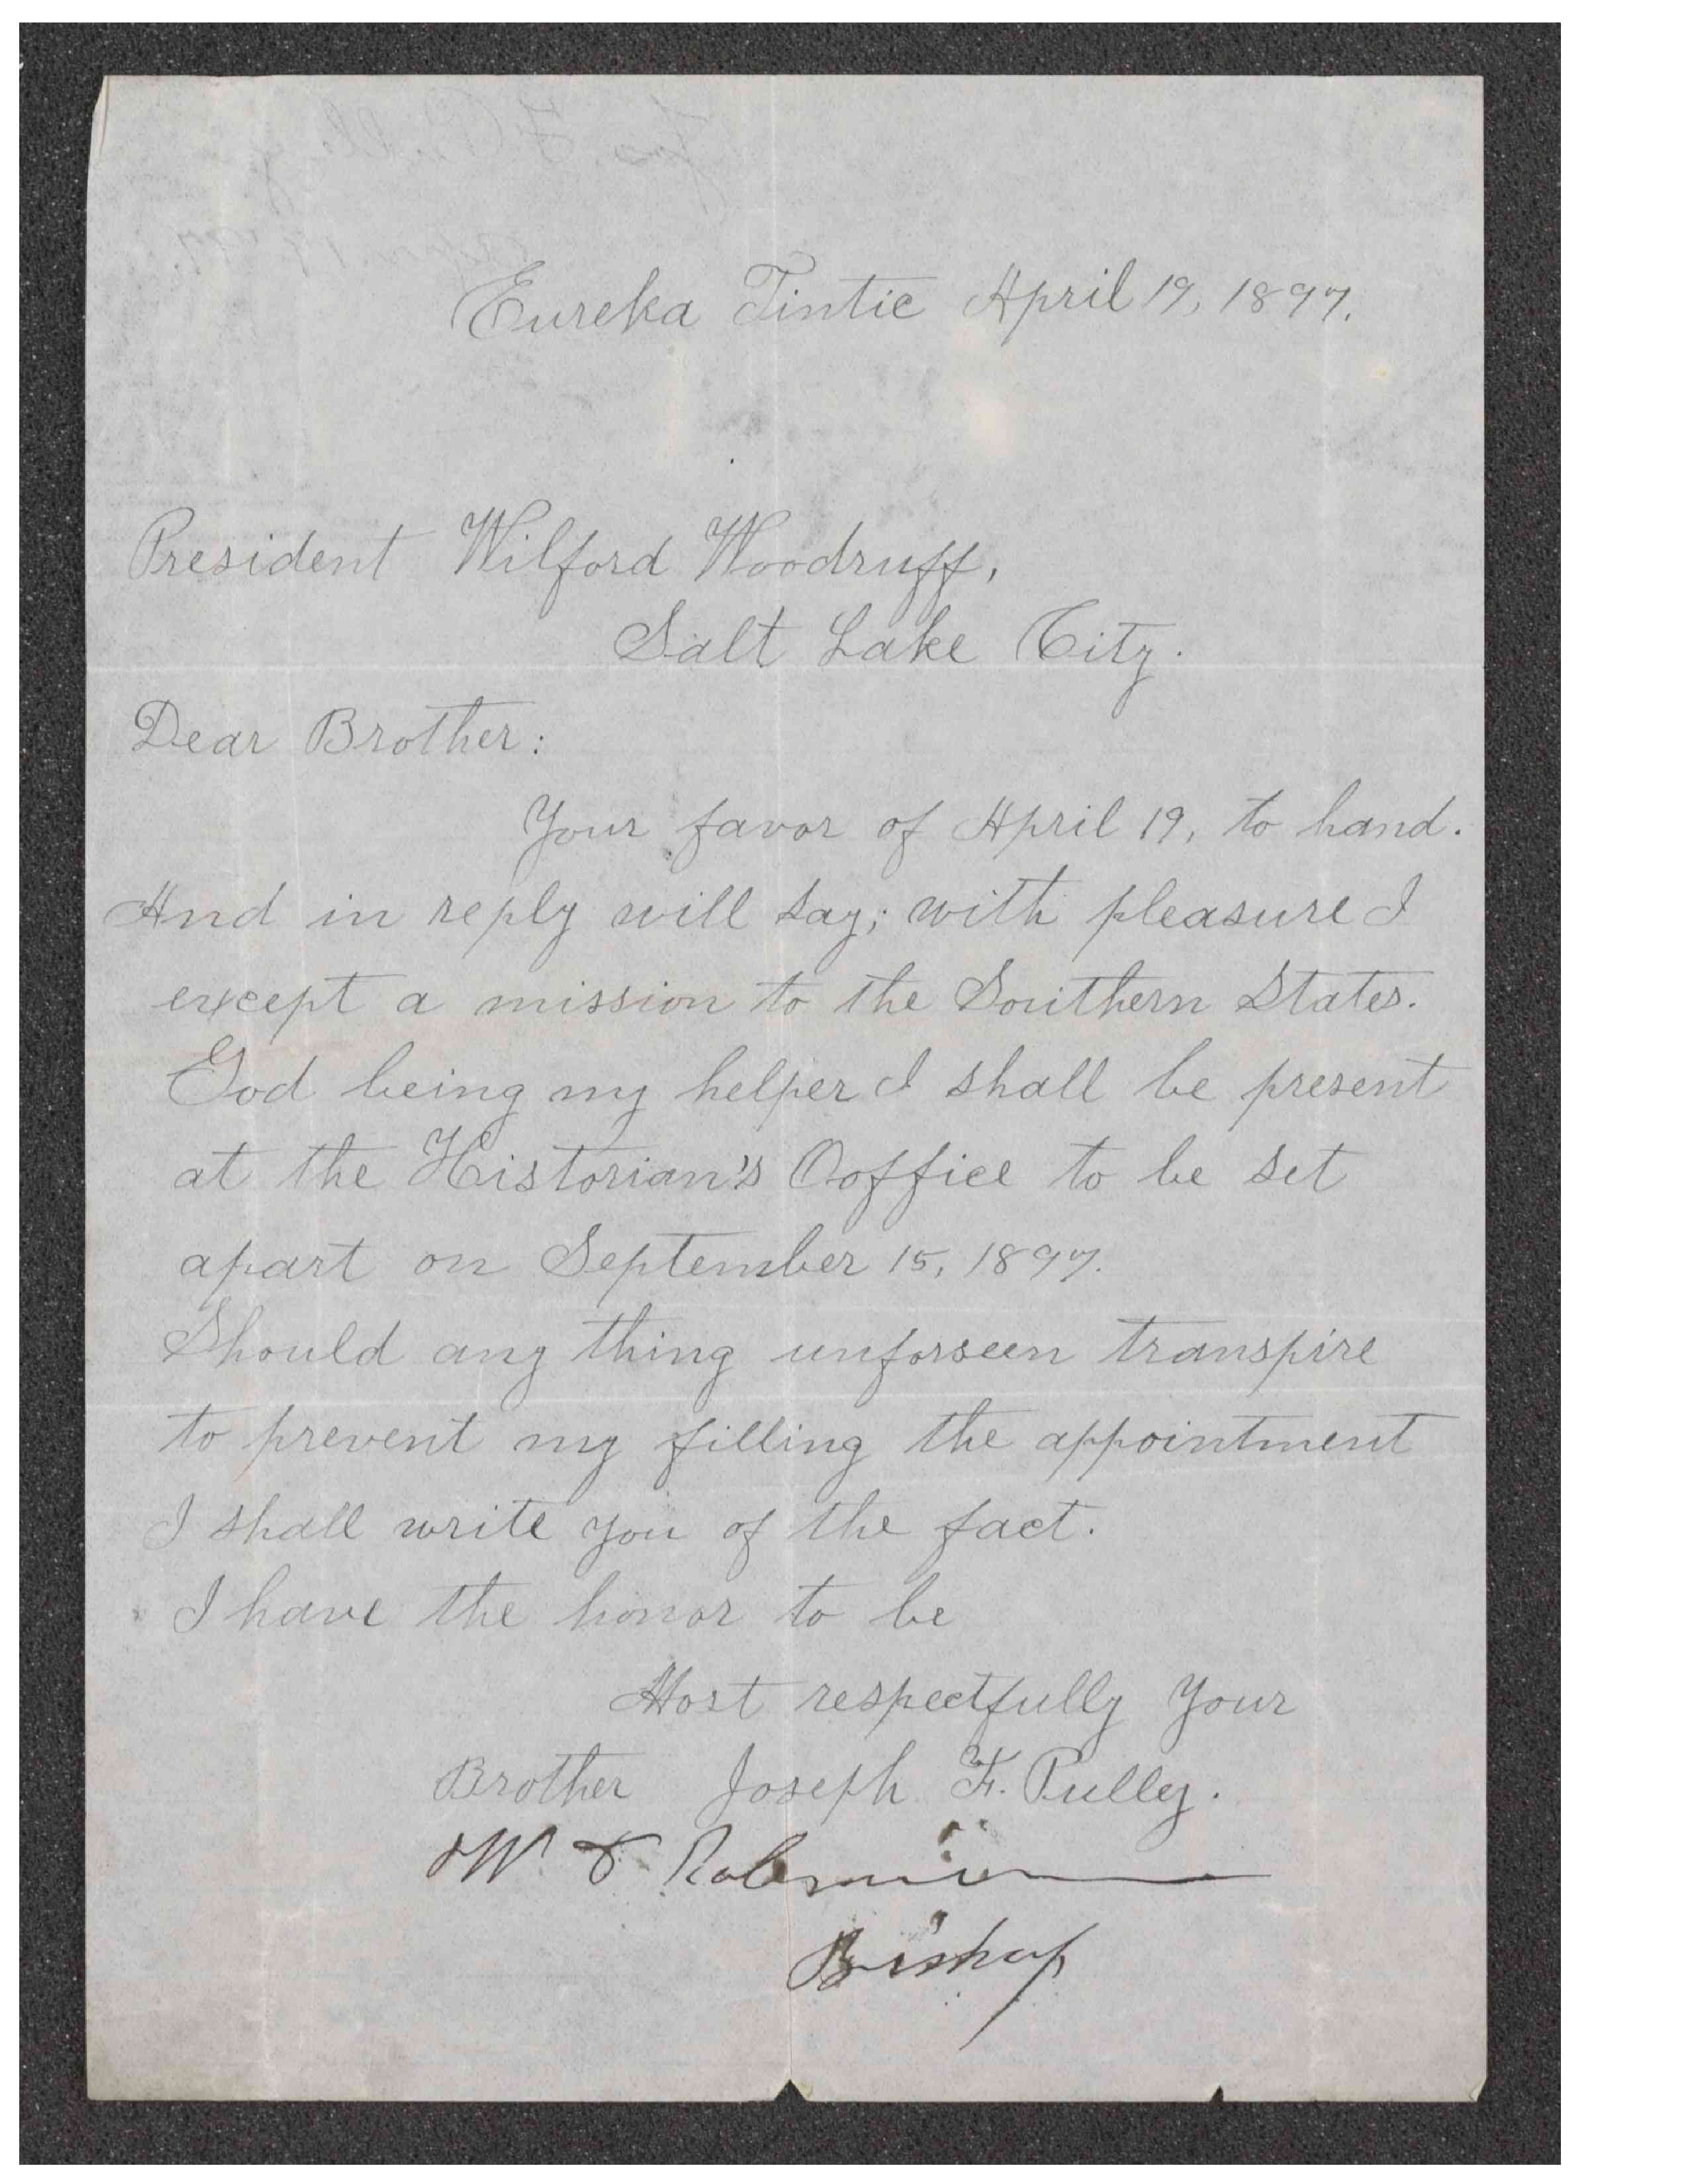 Eureka Tintic April 19, 1897.
President Wilford Woodruff,
Salt Lake City.
Dear Brother:
Your favor of April 19, to hand.
And in reply will say; with pleasure I
except a mission to the Southern States.
God being my helper I shall be present
at the Historian's Ooffice to be set
apart on September 15, 1897.
Should any thing unforseen transpire
to prevent my filling the appointment
I shall write you of the fact.
I have the honor to be
Most respectfully Your
Brother Joseph F. Pulley.
Bishop